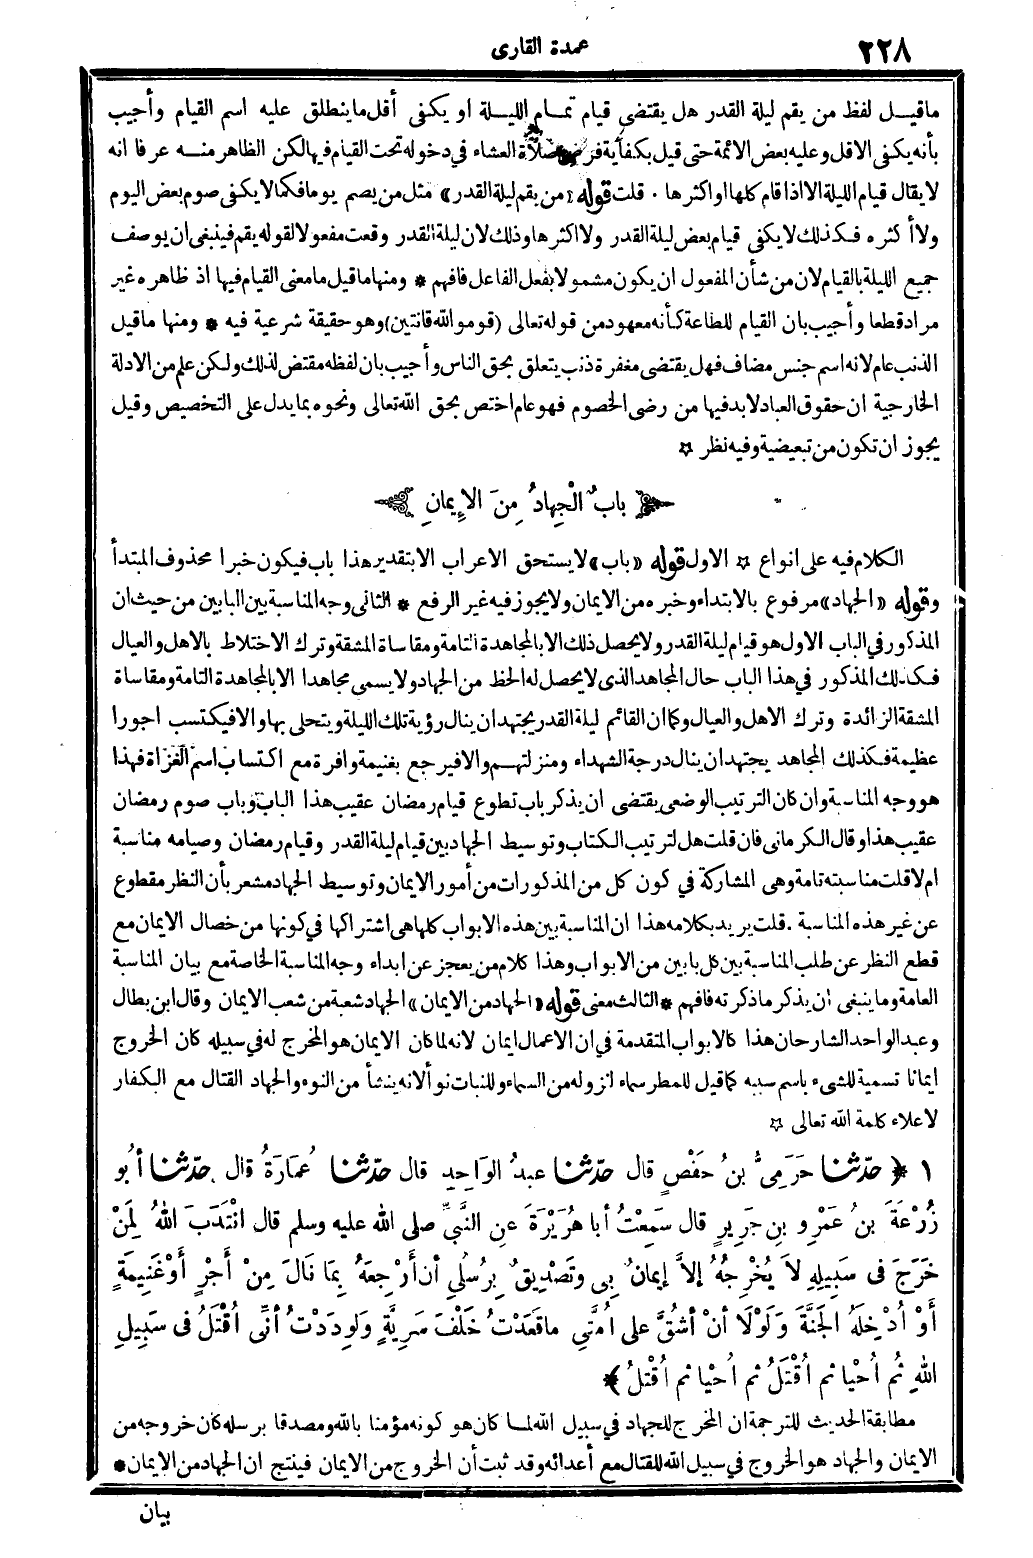 ٢٢٨
عمدة القارى
ماقيل لفظ من يقم ليلة القدر هل يقتضى قيام تمام الليلة او يكفى أقل ماينطلق عليه اسم القيام وأجيب
بأنه يكفى الاقل وعليه بعض الائمة حتى قيل بكفاية فرض صلاة العشاء فى دخوله تحت القيام فيها لكن الظاهر منه عرفا انه
لا يقال قيام الليلة الا اذا قام كلها او اكثرها . قلت قوله «من يقم ليلة القدر» مثل من يصم يوما فكما لا يكفى صوم بعض اليوم
ولا أكثره فكذلك لا يكفى قيام بعض ليلة القدر ولا اكثرها وذلك لان ليلة القدر وقعت مفعولا لقوله يقم فينبغى ان يوصف
جميع الليلة بالقيام لان من شأن المفعول ان يكون مشمولا بفعل الفاعل فافهم * ومنها ما قيل ما معنى القيام فيها اذ ظاهره غير
مراد قطعا وأجيب بان القيام للطاعة كأنه معهود من قوله تعالى (قوموا لله قانتين) وهو حقيقة شرعية فيه * ومنها ما قيل
الذنب عام لانه اسم جنس مضاف فهل يقتضى مغفرة ذنب يتعلق بحق الناس وأجيب بان لفظه مقتض لذلك ولكن علم من الادلة
الخارجية ان حقوق العباد لا بد فيها من رضى الخصوم فهو عام اختص بحق الله تعالى ونحوه بما يدل على التخصيص وقيل
يجوز ان تكون من تبعيضية وفيه نظر ☆
باب الْجِهَادُ مِنَ الإِيمَانِ
الكلام فيه على انواع ☆ الاول قوله «باب» لا يستحق الاعراب الا بتقدير هذا باب فيكون خبرا محذوف المبتدأ
وقوله «الجهاد» مرفوع بالابتداء وخبره من الايمان ولا يجوز فيه غير الرفع * الثانى وجه المناسبة بين البابين من حيث ان
المذكور فى الباب الاول هو قيام ليلة القدر ولا يحصل ذلك الا بالمجاهدة التامة ومقاساة المشقة وترك الاختلاط بالاهل والعيال
فكذلك المذكور فى هذا الباب حال المجاهد الذى لا يحصل له الحظ من الجهاد ولا يسمى مجاهدا الا بالمجاهدة التامة ومقاساة
المشقة الزائدة وترك الاهل والعيال وكما ان القائم ليلة القدر يجتهد ان ينال رؤية تلك الليلة ويتحلى بها والا فيكتسب اجورا
عظيمة فكذلك المجاهد يجتهد ان ينال درجة الشهداء ومنزلتهم والا فيرجع بغنيمة وافرة مع اكتساب اسم الغزاة فهذا
هو وجه المناسبة وان كان الترتيب الوضعى يقتضى ان يذكر باب تطوع قيام رمضان عقيب هذا الباب وباب صوم رمضان
عقيب هذا وقال الكرمانى فان قلت هل لترتيب الكتاب وتوسيط الجهاد بين قيام ليلة القدر وقيام رمضان وصيامه مناسبة
ام لا قلت مناسبته تامة وهى المشاركة فى كون كل من المذكورات من أمور الايمان وتوسيط الجهاد مشعر بأن النظر مقطوع
عن غير هذه المناسبة . قلت يريد بكلامه هذا ان المناسبة بين هذه الابواب كلها هى اشتراكها فى كونها من خصال الايمان مع
قطع النظر عن طلب المناسبة بين كل بابين من الابواب وهذا كلام من يعجز عن ابداء وجه المناسبة الخاصة مع بيان المناسبة
العامة وما ينبغى أن يذكر ما ذكرته فافهم * الثالث معنى قوله «الجهاد من الايمان» الجهاد شعبة من شعب الايمان وقال ابن بطال
وعبد الواحد الشارحان هذا كالابواب المتقدمة فى ان الاعمال ايمان لانه لما كان الايمان هو المخرج له فى سبيله كان الخروج
ايمانا تسمية للشىء باسم سببه كما قيل للمطر سماء لنزوله من السماء وللنبات نوأ لانه ينشأ من النوء والجهاد القتال مع الكفار
لاعلاء كلمة الله تعالى ☆
١ ﴿ حدّثنا حَرَمِىُّ بنُ حَفْصٍ قال حدّثنا عبدُ الوَاحِدِ قال حدّثنا عُمَارَةُ قال حدّثنا أَبُو
زُرْعَةَ بنُ عَمْرِو بنِ جَرِيرٍ قال سَمِعْتُ أبا هُرَيْرَةَ عنِ النَّبِيِّ صلى الله عليه وسلم قال انْتَدَبَ اللهُ لِمَنْ
خَرَجَ فى سَبِيلِهِ لاَ يُخْرِجُهُ إلاَّ إيمَانٌ بِى وتَصْدِيقٌ بِرُسُلِي أنْ أُرْجِعَهُ بِمَا نَالَ مِنْ أَجْرٍ أوْ غَنِيمَةٍ
أَوْ أُدْخِلَهُ الجَنَّةَ وَلَوْلَا أنْ أشُقَّ على أُمَّتِى ما قَعَدْتُ خَلْفَ سَرِيَّةٍ وَلوَدِدْتُ أنِّى أُقْتَلُ فى سَبِيلِ
اللهِ ثُم أُحْيَا ثم أُقْتَلُ ثم أُحْيَا ثم أُقْتلُ ﴾
مطابقة الحديث للترجمة ان المخرج للجهاد فى سبيل الله لما كان هو كونه مؤمنا بالله ومصدقا برسله كان خروجه من
الايمان والجهاد هو الخروج فى سبيل الله للقتال مع أعدائه وقد ثبت أن الخروج من الايمان فينتج ان الجهاد من الايمان *
بيان